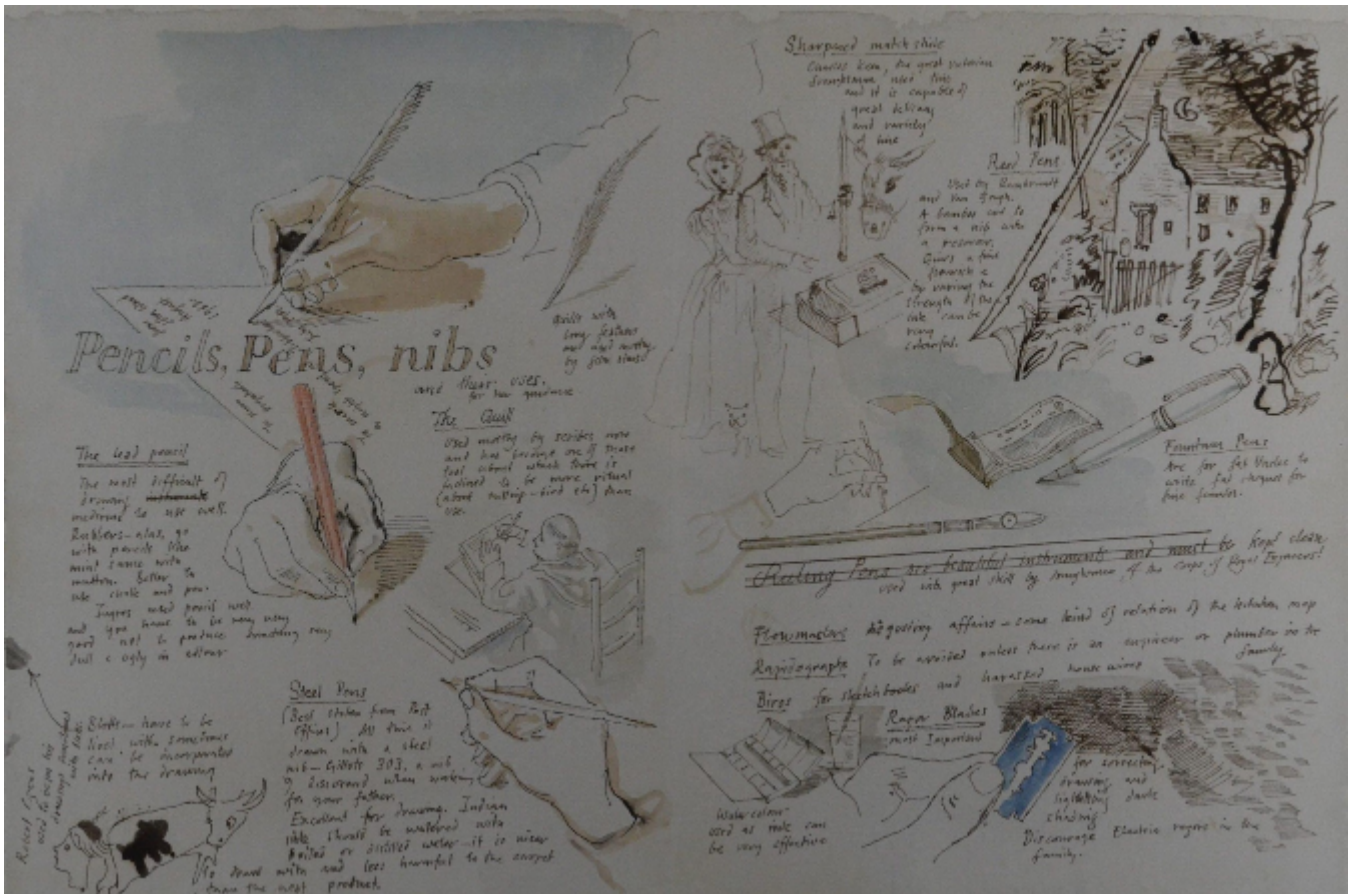 Pencils, Pens, nibs
and their uses.
for new guidance
Quills with
long feathers
are used mostly
by film stars!
The lead pencil
The most difficult of
drawing instruments
mediums to use well.
Rubbers—alas, go
with pencils like
mint sauce with
mutton. Better to
use chalk and pen.
Ingres used pencil well
and you have to be very very
good not to produce something very
dull & ugly in colour
The Quill
Used mostly by scribes now
and has become one of those
tool about which there is
inclined to be more ritual
(about nutrip—bird etc) than
use.
Steel Pens
(Best stolen from Post
Offices) All this is
drawn with a steel
nib—Gillott 303, a nib
I discovered when working
for your father.
Excellent for drawing. Indian
ink should be watered with
boiled or distilled water—it is nicer
to draw with and less harmful to the carpet
than the neat product.
Blots—have to be
lived with sometimes
can be incorporated
into the drawing
used to wipe his
drawings
with
Sharpened match stick
Charles Keen, the great victorian
draughtsman used this
and it is capable of
great delicacy
and variety
of line
Reed Pens
Used by Rembrandt
and Van Gogh.
A bamboo cut to
form a nib with
a reservoir.
Gives a fine
flourish &
by varying the
strength of the
ink can be
very
colourful.
Fountain Pens
Are for fat Uncles to
write fat cheques for
fine females.
Ruling Pens are beautiful instruments and must be kept clean
used with great skill by draughtsmen of the Corps of Royal Engineers!
Flowmasters disgusting affairs—some kind of relation of the kitchen mop
Rapidographs To be avoided unless there is an engineer or plumber in the
family.
Biros for sketchbooks and harassed housewives
Razor Blades
most Important
for correcting
drawing and
lightening dark
shading
Discourage Electric razors in the
family.
Water colour
used as ink can
be very effective